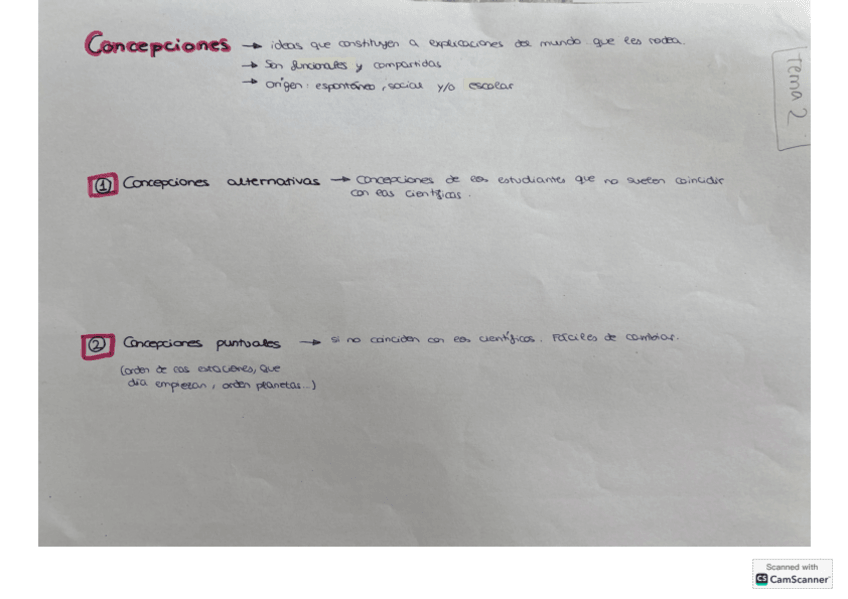 Concepciones → ideas que constituyen a explicaciones del mundo que les rodea.
→ Son funcionales y compartidas
→ origen: espontáneo, social y/o escolar
Tema 2
① Concepciones alternativas → Concepciones de los estudiantes que no suelen coincidir
con las científicas.
② Concepciones puntuales → si no coinciden con las científicas. Fáciles de cambiar.
(orden de las estaciones, que
día empiezan, orden planetas...)
Scanned with
CS CamScanner